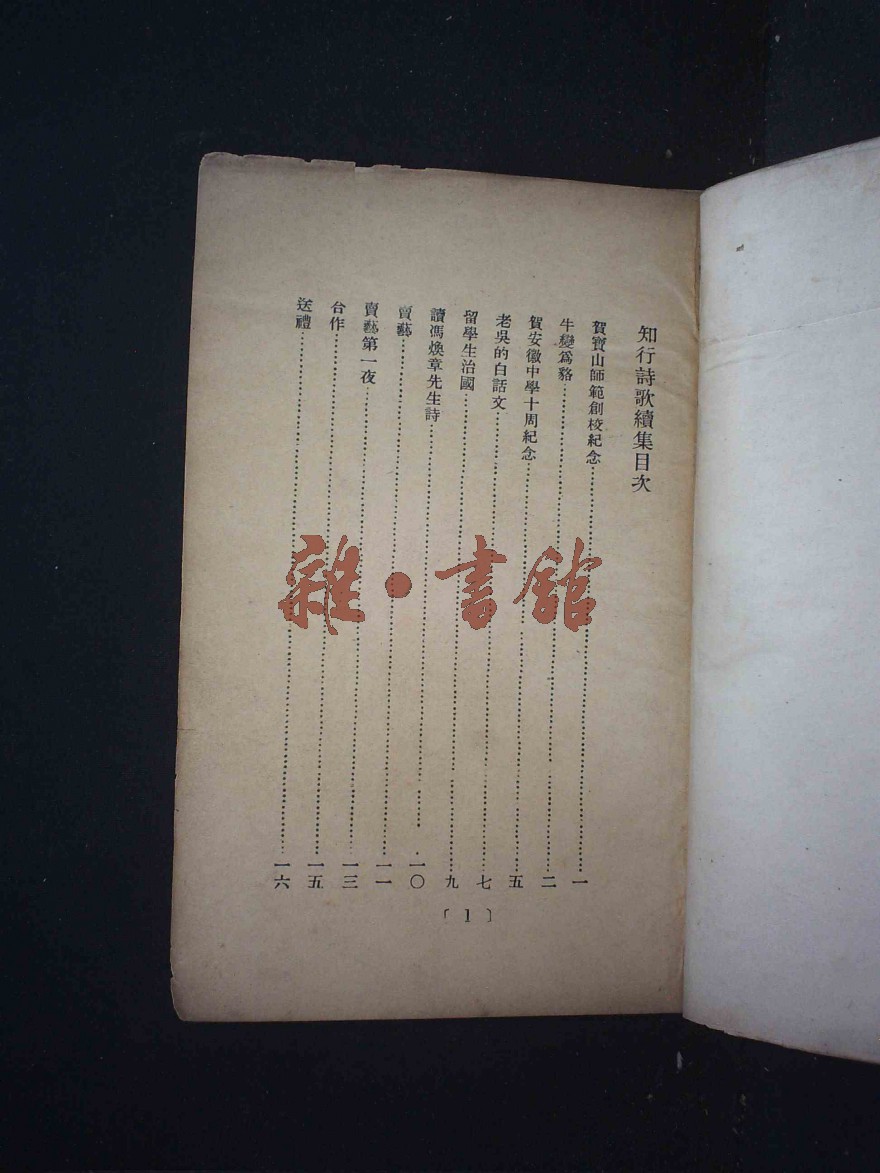 知行詩歌續集目次
賀寶山師範創校紀念……一
牛變爲豬……二
賀安徽中學十周紀念……五
老吳的白話文……七
留學生治國……九
讀馮煥章先生詩……一〇
賣藝……一一
賣藝第一夜……一三
合作……一五
送禮……一六
〔1〕
雜·書館